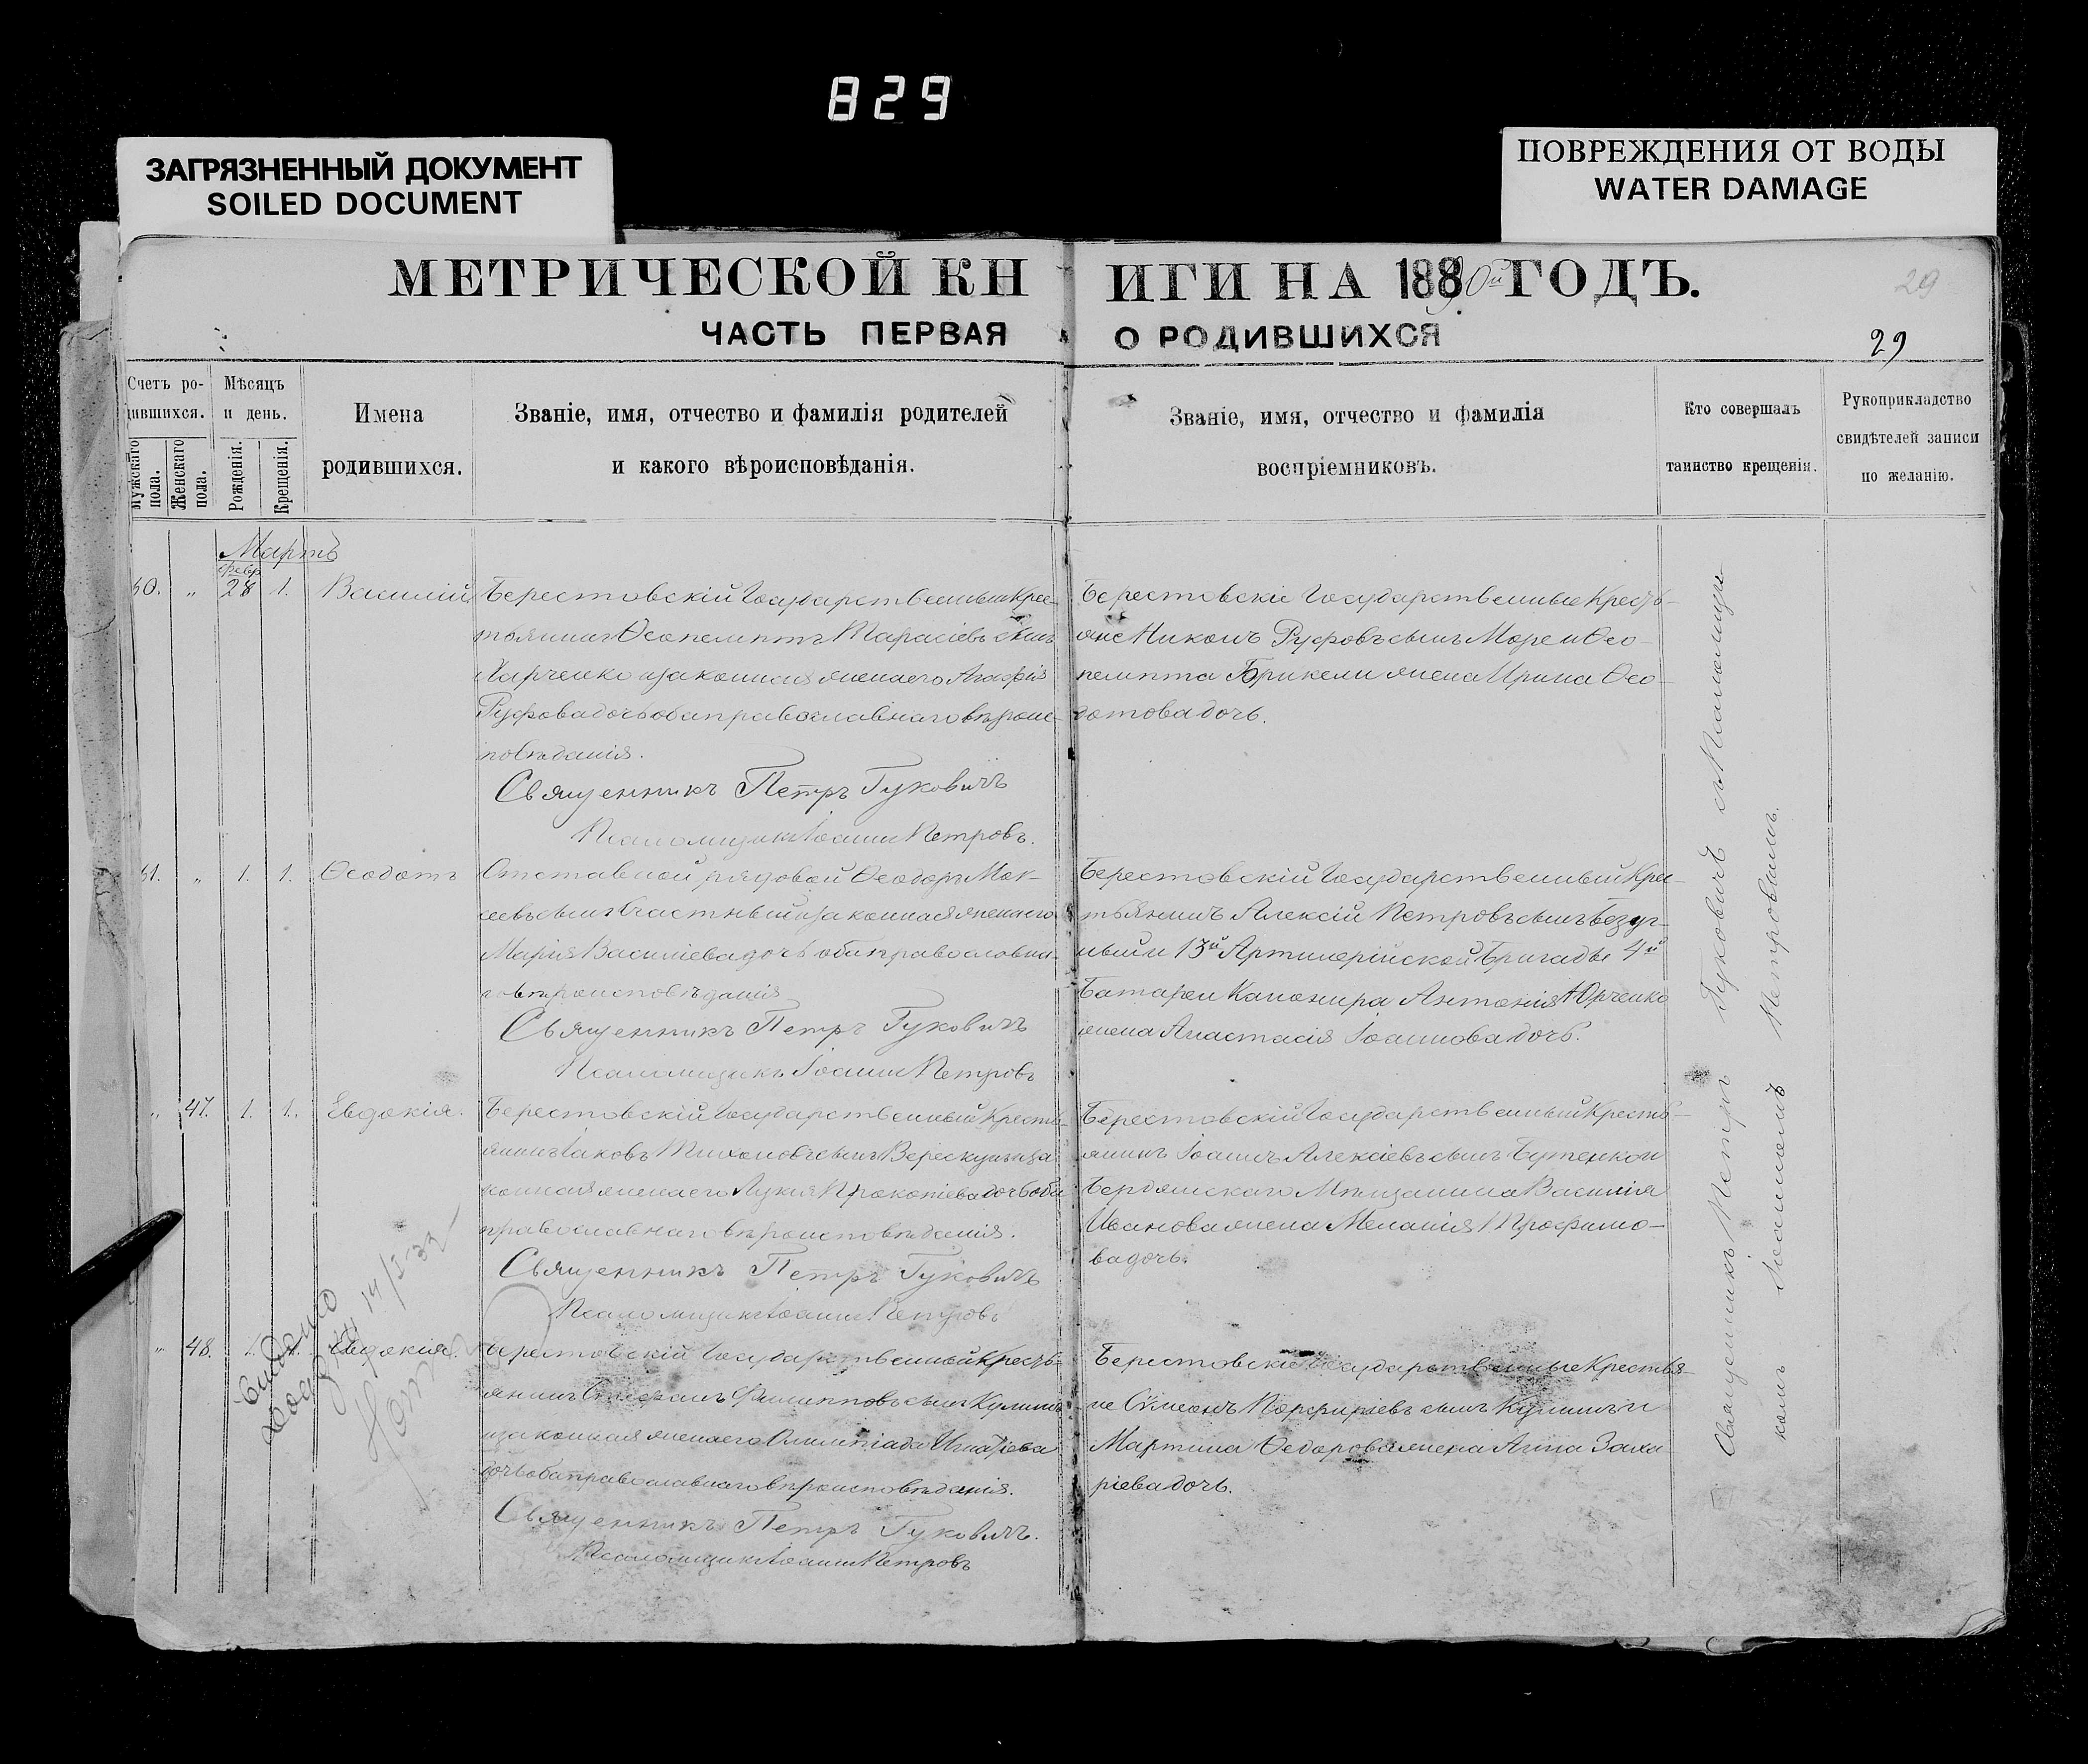 829
ЗАГРЯЗНЕННЫЙ ДОКУМЕНТ
SOILED DOCUMENT
ПОВРЕЖДЕНИЯ ОТ ВОДЫ
WATER DAMAGE
МЕТРИЧЕСКОЙ КНИГИ НА 1890й ГОДЪ.
29
ЧАСТЬ ПЕРВАЯ О РОДИВШИХСЯ
29
Счетъ ро-
дившихся.
Мужскаго пола.
Женскаго пола.
Мѣсяцъ
и день.
Рожденія.
Крещенія.
Имена
родившихся.
Званіе, имя, отчество и фамилія родителей
и какого вѣроисповѣданія.
Званіе, имя, отчество и фамилія
воспріемниковъ.
Кто совершалъ
таинство крещенія.
Рукоприкладство
свидѣтелей записи
по желанію.
Мартъ
февр
50. „ 28 1. Василій
Берестовскій Государственный Крес-
тьянинъ Ѳеопемптъ Тарасіевъ сынъ
Харченко и законная жена его Агафія
Руфова дочь оба православнаго вѣроис-
повѣданія.
Священникъ Петръ Гуковичъ
Псаломщикъ Іоаннъ Петровъ.
Берестовскіе Государственные Кресть-
яне Никонъ Руфовъ сынъ Море и Ѳео-
пемпта Брикели жена Ирина Ѳео-
дотова дочь.
51. „ 1. 1. Ѳеодотъ
Отставной рядовой Ѳеодоръ Мок-
іевъ сынъ Счастный и законная жена его
Марія Василіева дочь оба православна-
го вѣроисповѣданія
Священникъ Петръ Гуковичъ
Псаломщикъ Іоаннъ Петровъ
Берестовскій Государственный Крес-
тьянинъ Алексій Петровъ сынъ Безуг-
лый и 13й Артилерійской Бригады 4й
Батареи Канонира Антонія Юрченко
жена Анастасія Іоаннова дочь.
„ 47. 1. 1. Евдокія.
Берестовскій Государственный Кресть-
янинъ Іаковъ Тихоновъ сынъ Верескунъ и за-
конная жена его Лукія Прокопіева дочь оба
православнаго вѣроисповѣданія.
Священникъ Петръ Гуковичъ
Псаломщикъ Іоаннъ Петровъ
Берестовскій Государственный Кресть-
янинъ Іоаннъ Алексіевъ сынъ Бутенко и
Бердянскаго Мѣщанина Василія
Иванова жена Меланія Трофимо-
ва дочь.
„ 48. 1. 1. Евдокія.
Берестовскій Государственный Кресть-
янинъ Стефанъ Филипповъ сынъ Кулишъ
и законная жена его Олимпіада Игнатіева
дочь оба православнаго вѣроисповѣданія.
Священникъ Петръ Гуковичъ.
Псаломщикъ Іоаннъ Петровъ
Берестовскіе Государственные Крестья-
не Сѵмеонъ Порфиріевъ сынъ Кулишъ и
Мартина Ѳедорова жена Анна Заха-
ріева дочь.
Священникъ Петръ Гуковичъ съ Псаломщи-
комъ Іоанномъ Петровымъ.